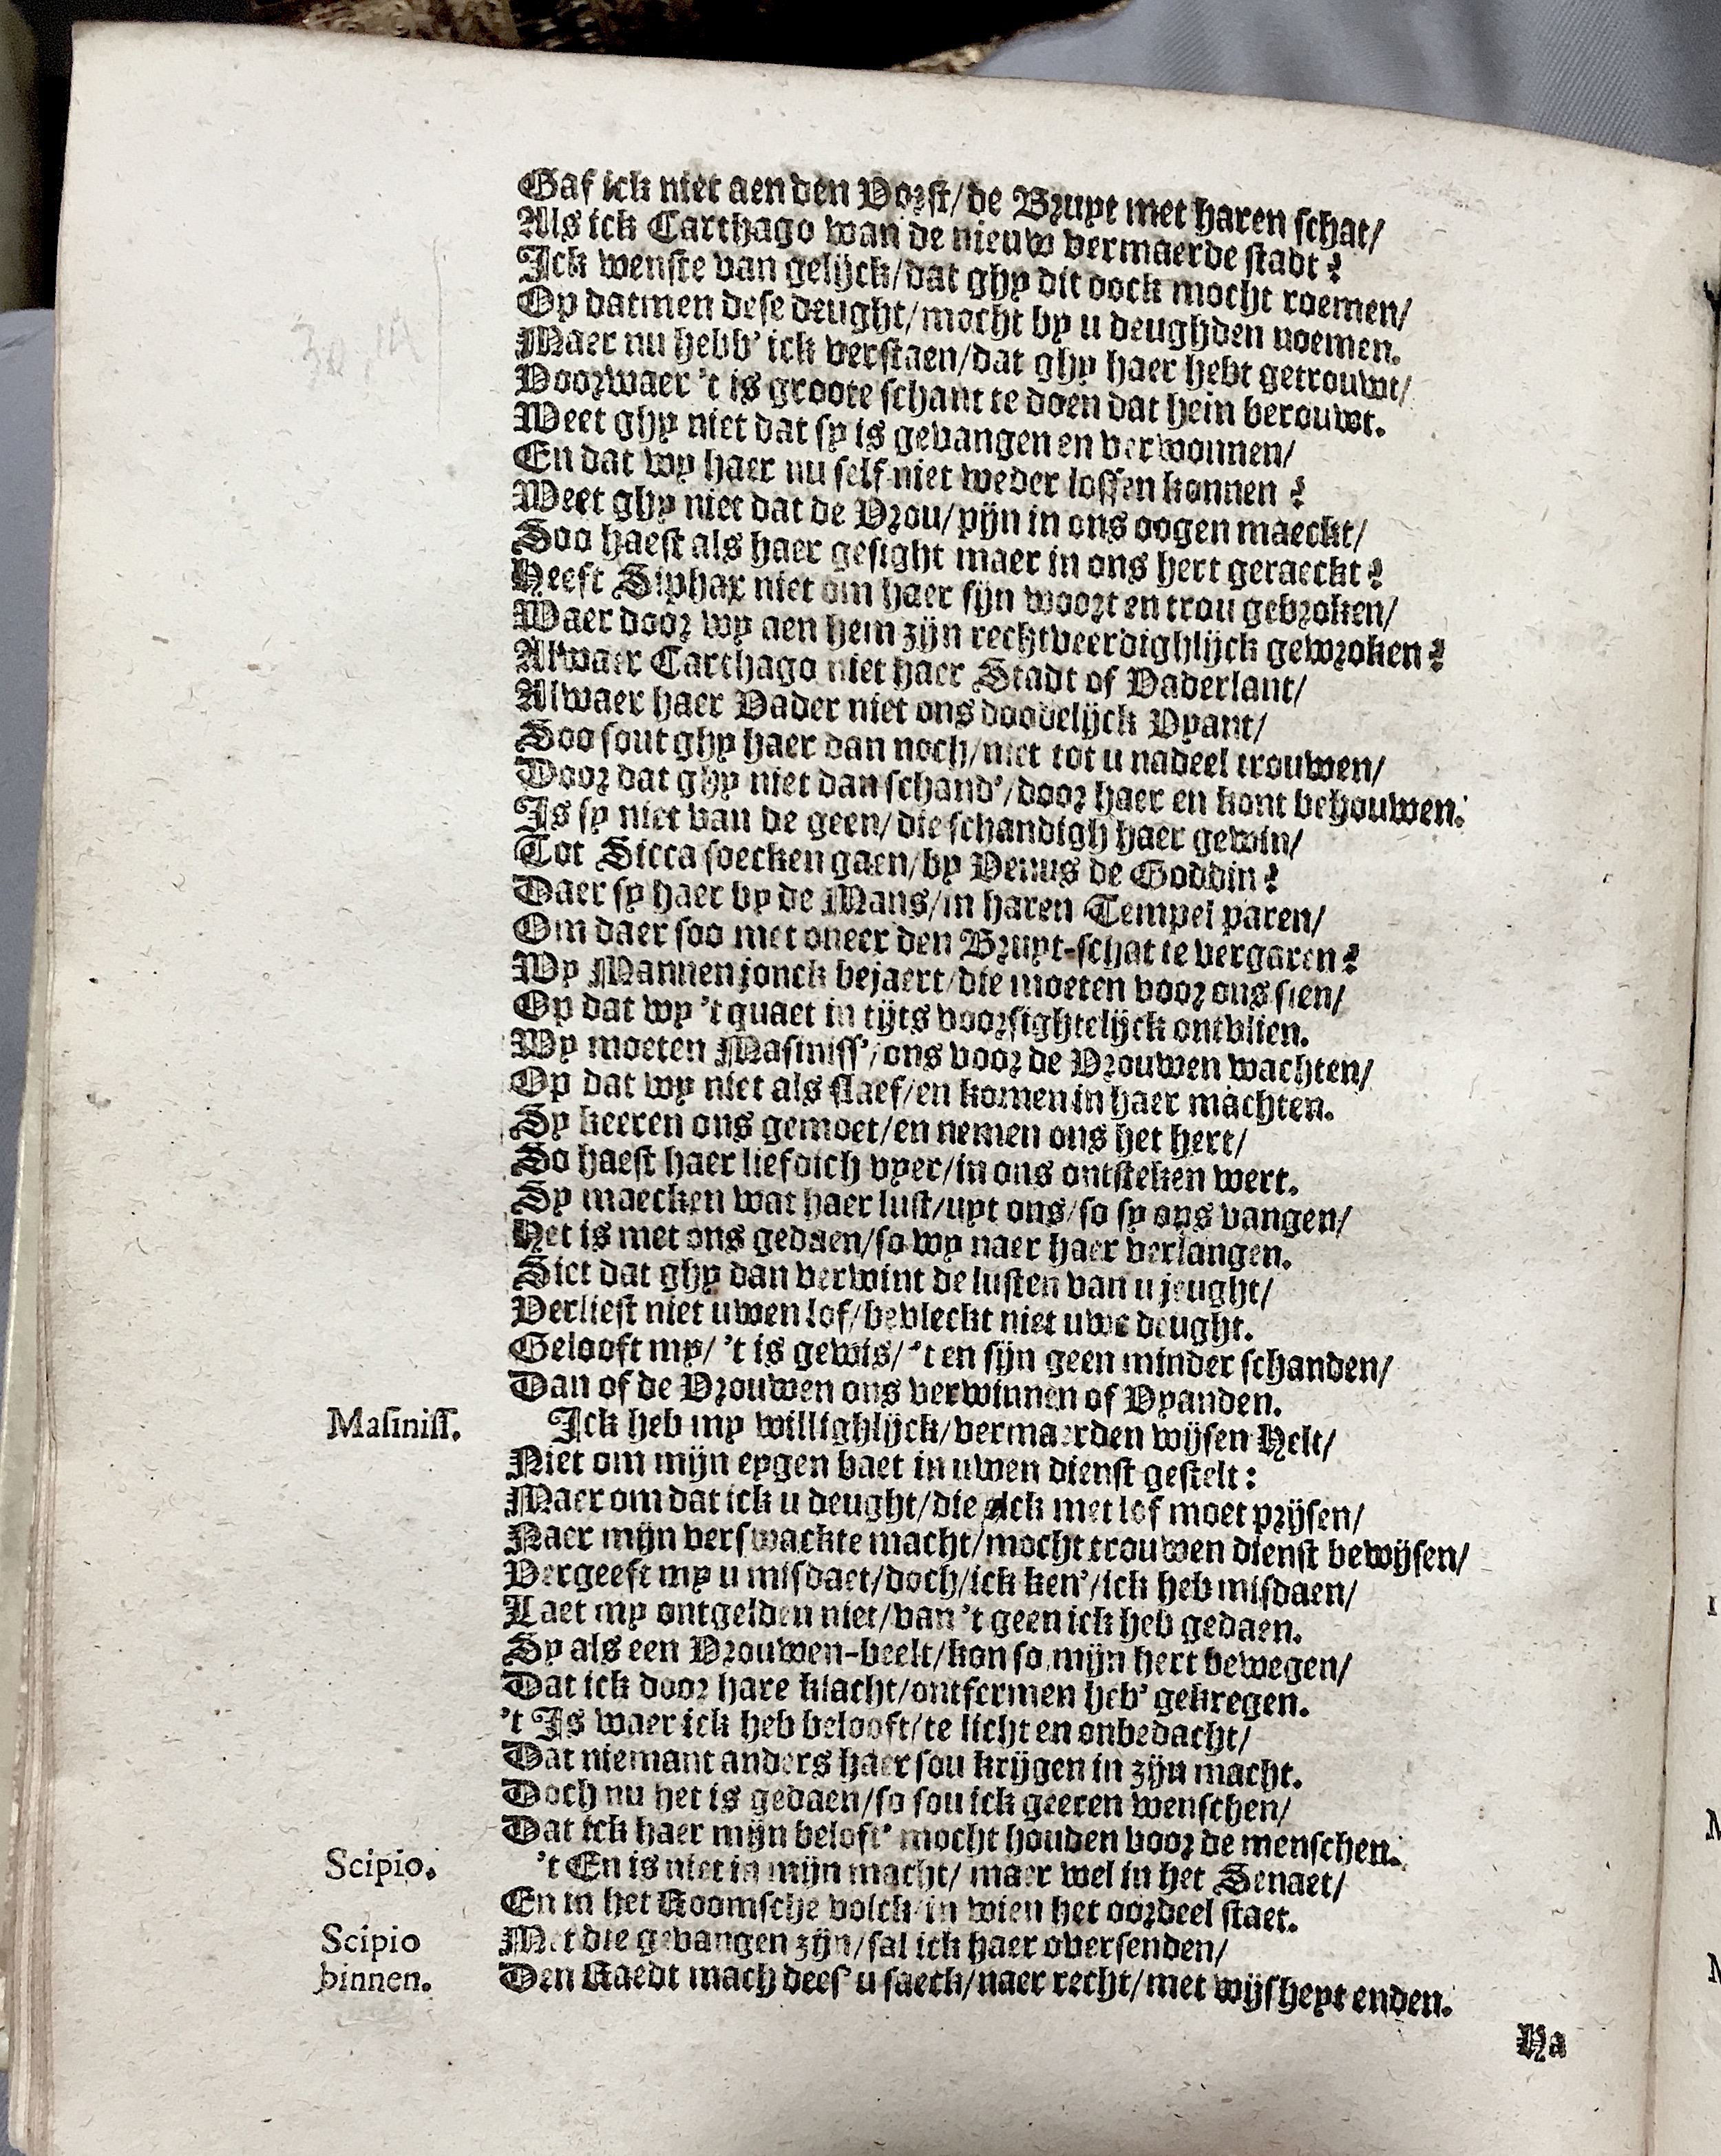 Gaf ick niet aen den Vorst/ de Bruyt met haren schat/
Als ick Carthago wan de nieuw vermaerde stadt?
Ick wenste van gelijck/ dat ghy dit oock mocht roemen/
Op datmen dese deught/ mocht by u deughden noemen.
Maer nu hebb' ick verstaen/ dat ghy haer hebt getrouwt/
Voorwaer 't is groote schant te doen dat hein berouwt.
Weet ghy niet dat sy is gevangen en verwonnen/
En dat wy haer nu self niet weder lossen konnen?
Weet ghy niet dat de Vrou/ pijn in ons oogen maeckt/
Soo haest als haer gesight maer in ons hert geraeckt?
Heeft Siphax niet om haer sijn woort en trou gebroken/
Waer door wy aen hem zijn rechtveerdighlijck gewroken?
Al'waer Carthago niet haer Stadt of Vaderlant/
Alwaer haer Vader niet ons doodelijck Vyant/
Soo sout ghy haer dan noch/ niet tot u nadeel trouwen/
Door dat ghy niet dan schand'/ door haer en kont behouwen.
Is sy niet van de geen/ die schandigh haer gewin/
Tot Sicca soecken gaen/ by Venus de Goddin?
Daer sy haer by de Mans/ in haren Tempel paren/
Om daer soo met oneer den Bruyt-schat te vergaren?
Wy Mannen jonck bejaert/ die moeten voor ons sien/
Op dat wy 't quaet in tijts voorsightelijck ontvlien.
Wy moeten Masiniss'/ ons voor de Vrouwen wachten/
Op dat wy niet als slaef/ en komen in haer machten.
Sy keeren ons gemoet/ en nemen ons het hert/
So haest haer liefdich vyer/ in ons ontsteken wert.
Sy maecken wat haer lust/ uyt ons/ so sy ons vangen/
Het is met ons gedaen/ so wy naer haer verlangen.
Siet dat ghy dan verwint de lusten van u jeught/
Verliest niet uwen lof/ bevleckt niet uwe deught.
Gelooft my/ 't is gewis/ 't en sijn geen minder schanden/
Dan of de Vrouwen ons verwinnen of Vyanden.
Masiniss. Ick heb my willighlijck/ vermaerden wijsen Helt/
Niet om mijn eygen baet in uwen dienst gestelt:
Maer om dat ick u deught/ die ick met lof moet prijsen/
Naer mijn verswackte macht/ mocht trouwen dienst bewijsen/
Vergeeft my u misdaet/ doch/ ick ken'/ ick heb misdaen/
Laet my ontgelden niet/ van 't geen ick heb gedaen.
Sy als een Vrouwen-beelt/ kon so mijn hert bewegen/
Dat ick door hare klacht/ ontfermen heb' gekregen.
't Is waer ick heb belooft/ te licht en onbedacht/
Dat niemant anders haer sou krijgen in zijn macht.
Doch nu het is gedaen/ so sou ick geeren wenschen/
Dat ick haer mijn beloft' mocht houden voor de menschen.
Scipio. 't En is niet in mijn macht/ maer wel in het Senaet/
En in het Roomsche volck/ in wien het oordeel staet.
Scipio Met die gevangen zijn/ sal ick haer oversenden/
binnen. Den Raedt mach dees' u saeck/ naer recht/ met wijsheyt enden.
Ha